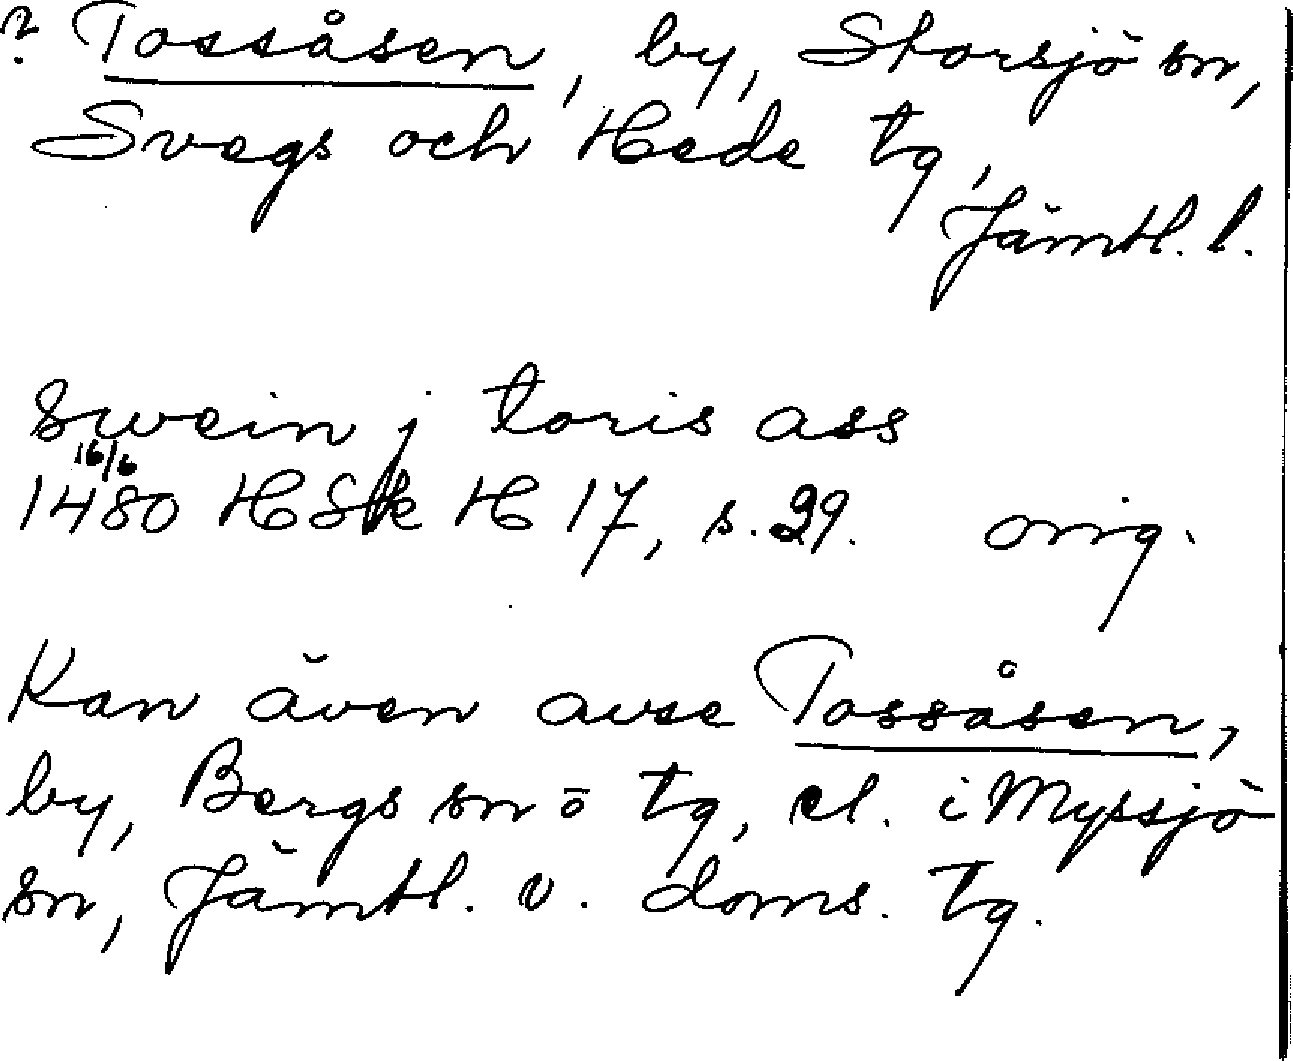 ? Tossåsen, by, Storsjö sn,
Svegs och Hede tg,
Jämtl. l.
Swein j toris ass
16/6
1480 HSH H 17, s. 29. orig.
Kan även avse Tossåsen,
by, Bergs sn o tg, el. i Myssjö
sn, Jämtl. v. doms. tg.